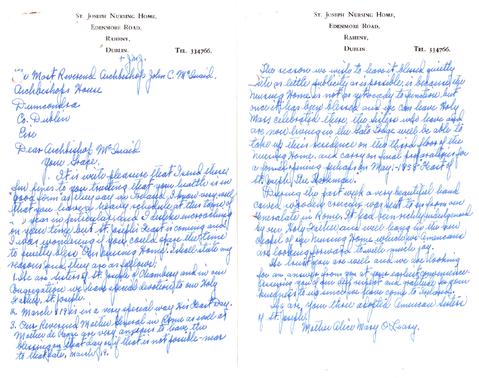 St. Joseph Nursing Home,
Edenmore Road,
Raheny,
Dublin. Tel. 334766.
To Most Reverend Archbishop John C. McQuaid
Archbishops House
Drumcondra
Co. Dublin
Eire
Dear Archbishop McQuaid
Your Grace.
It is with pleasure that I send these
few lines to you trusting that your health is in
good form as they say in Ireland. I know very well
that you have a heavy schedule at this time of
year in particular, and I dislike encroaching
on your time but St. Joseph's Feast is coming and
I was wondering if you could spare the time
to quietly bless our nursing home. I shall state my
reasons and they are as follows:
1. We are Sisters of St. Joseph of Chambery and in our
Congregation we have special devotion to our Holy
Father, St. Joseph.
2. March 19th is in a very special way His Feast Day.
3. Our Reverend Mother General in Rome as well as
Mother are very anxious to have the
blessing on that day or if that is not possible near
to that date, March 19.
St. Joseph Nursing Home,
Edenmore Road,
Raheny,
Dublin. Tel. 334766.
The reason we wish to leave it blessed quietly
with as little publicity as possible, is because the
nursing Home is not as yet ready to function but
once it has been blessed and we can have Holy
Mass celebrated there, the Sisters who have and
are now living in the Gate Lodge will be able to
take up their residence on the third floor of the
nursing Home, and carry on final preparations for
a formal opening perhaps on May 1 - Feast of
St. Joseph, the Workman.
During the past week a very beautiful hand
carved wooden crucifix was sent to us from our
Generalate in Rome. It had been richly indulgenced
by our Holy Father and will hang in the
Chapel of our nursing Home, which we immensely
are looking forward to with much joy.
We trust you are well and we are looking
for an answer from you at your earliest convenience.
Assuring you of our deep respect and gratitude for your
kindness to us since we have come to Raheny.
We are, your three adopted American Sisters
of St. Joseph,
Mother Alice Mary O'Leary.